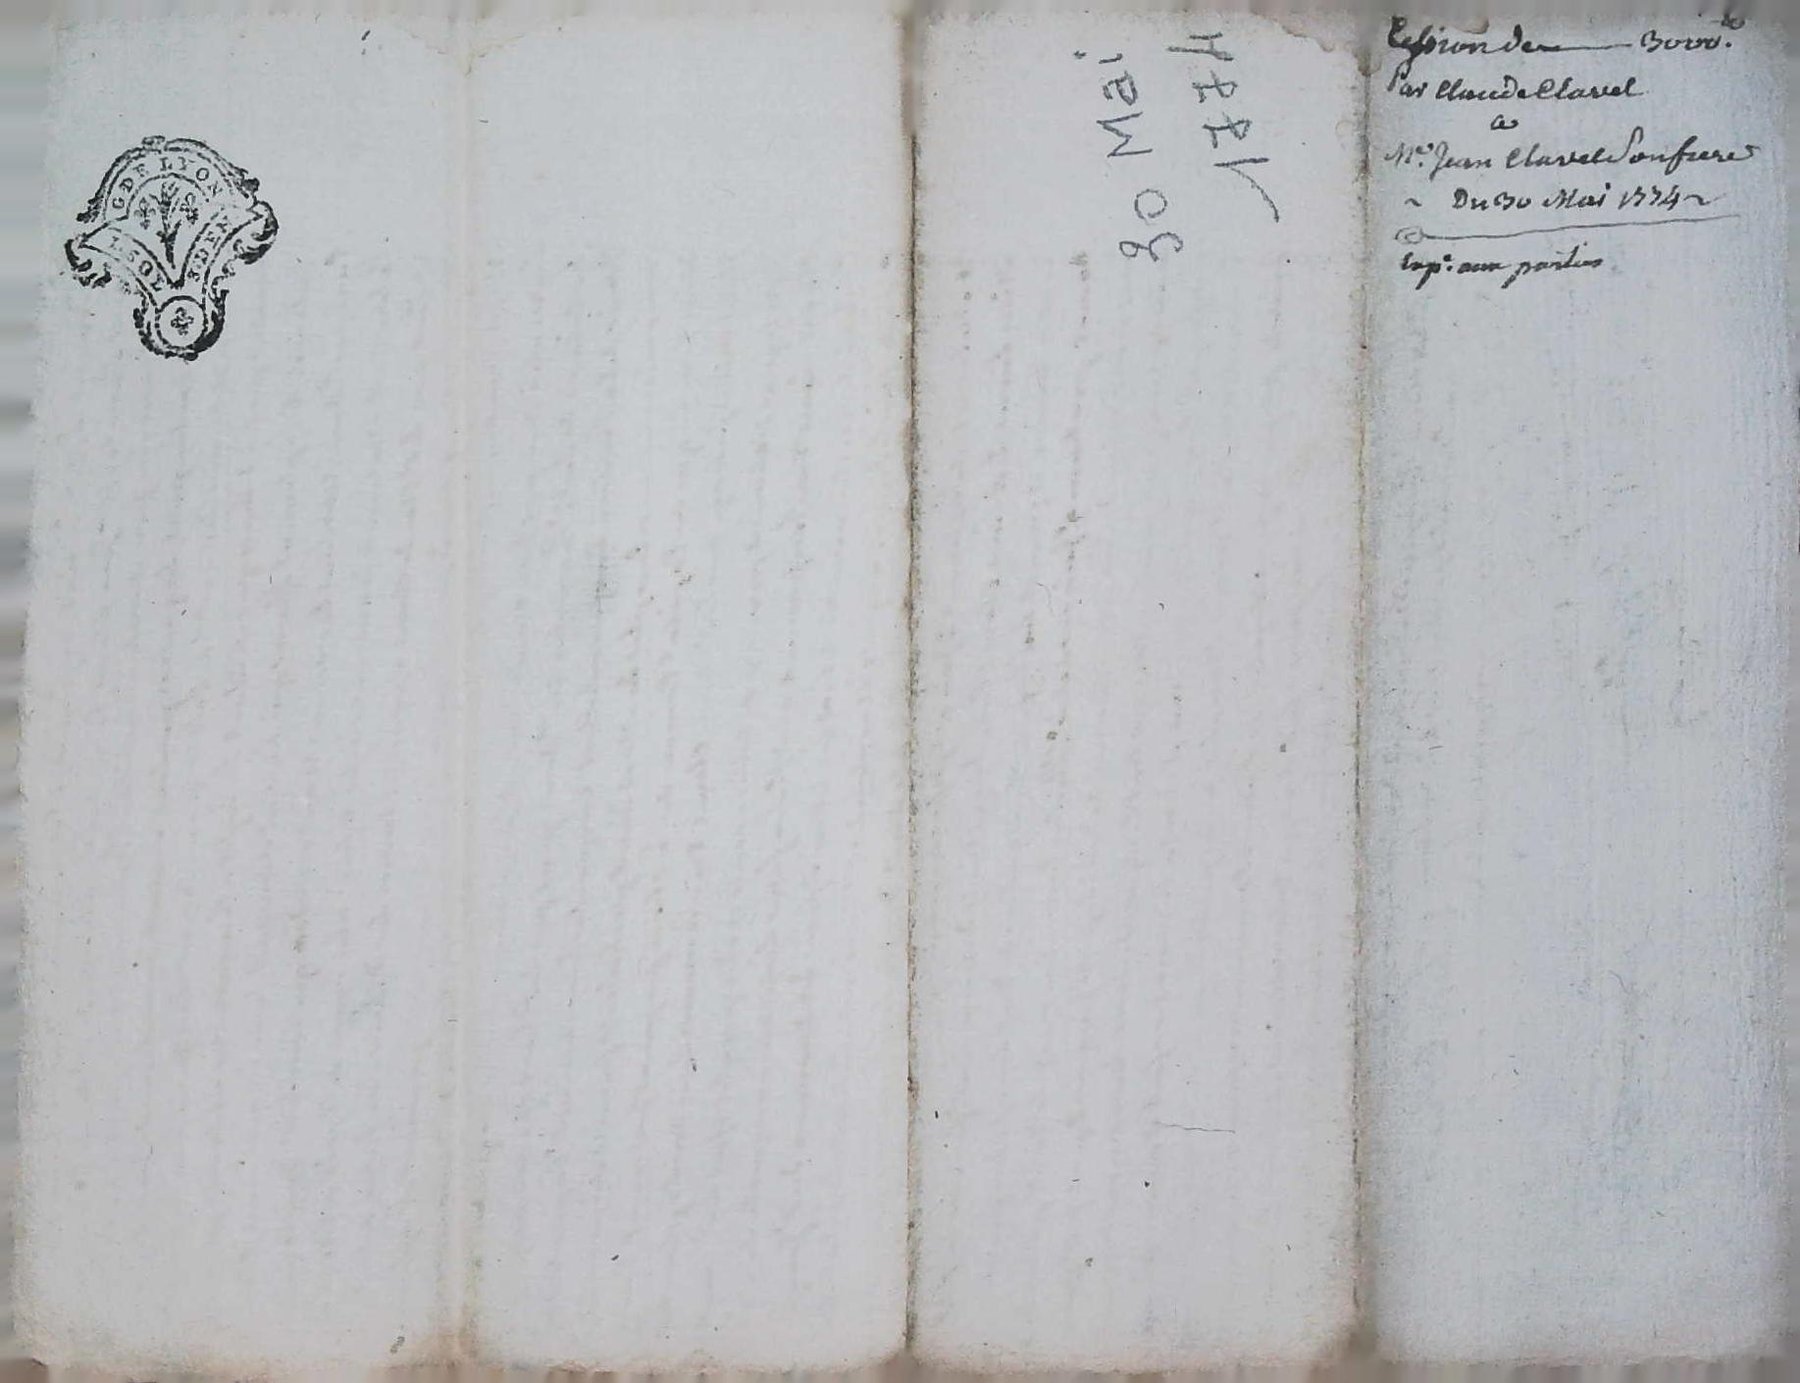 G. DE LYON
1 SOL
30 Mai
1774
Cession de — 3000.lt
Par Claude Clavel
a
Me. Jean Clavel Son frere
~ Du 30 Mai 1774 ~
Exp.e aux parties